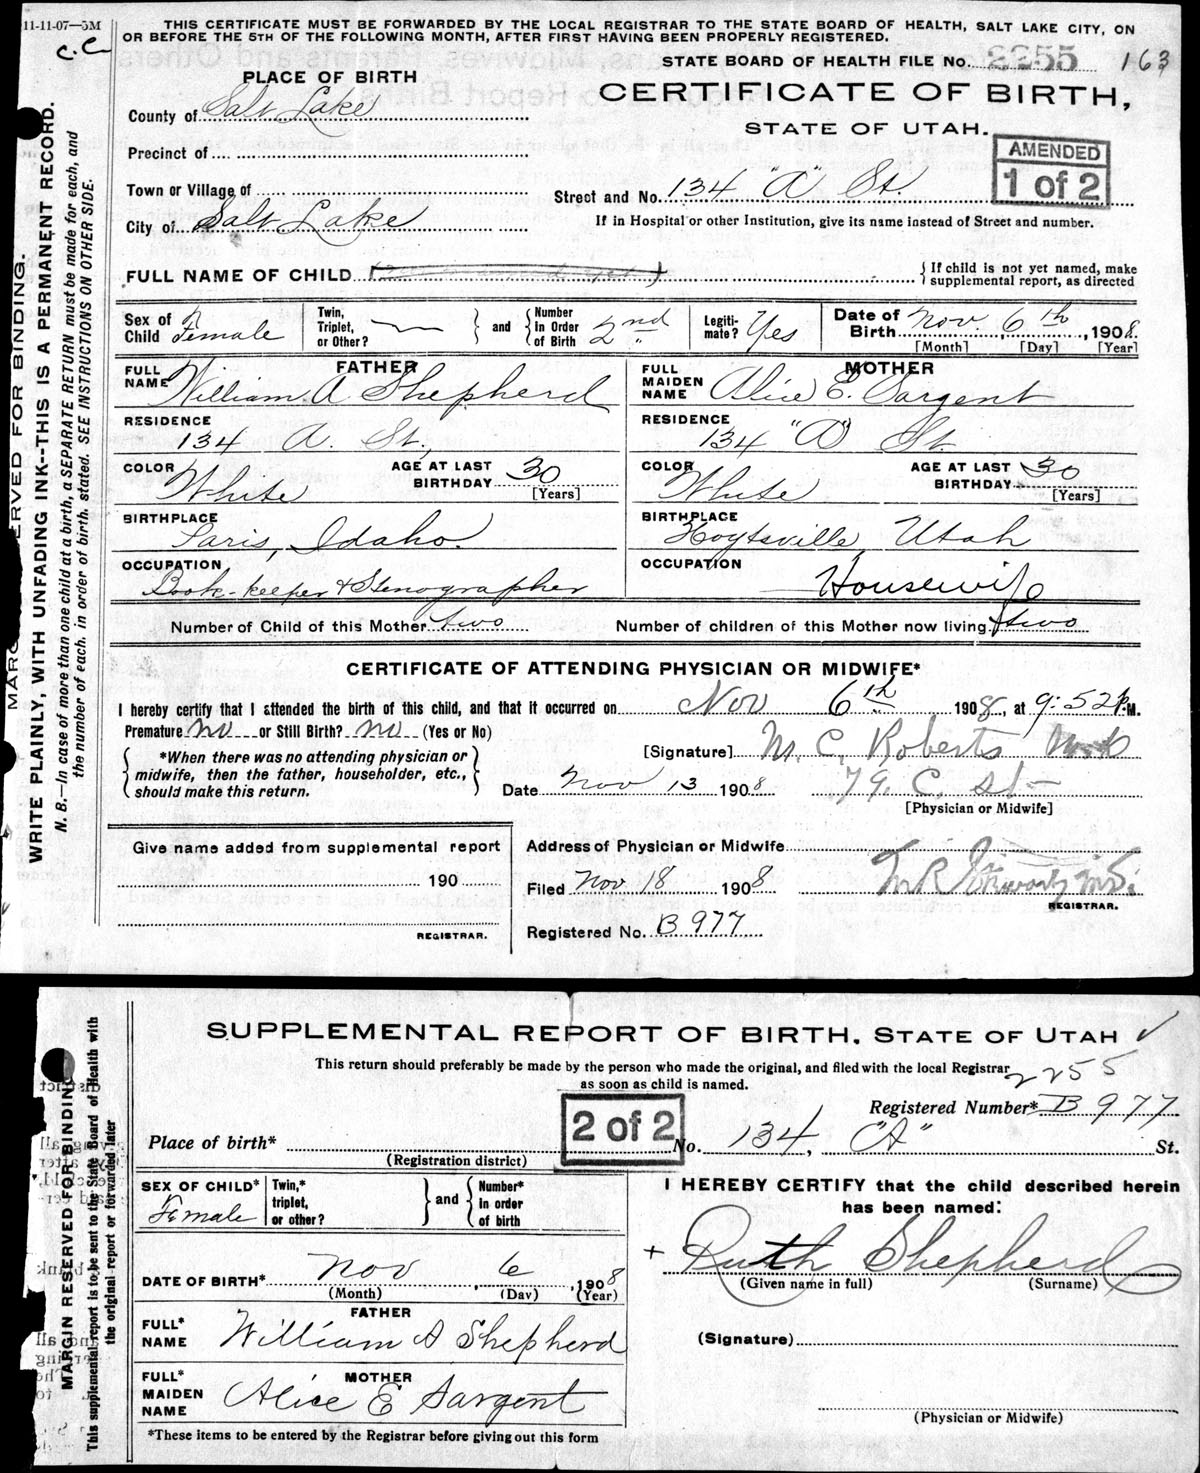 11-11-07—5M
C.C
THIS CERTIFICATE MUST BE FORWARDED BY THE LOCAL REGISTRAR TO THE STATE BOARD OF HEALTH, SALT LAKE CITY, ON
OR BEFORE THE 5TH OF THE FOLLOWING MONTH, AFTER FIRST HAVING BEEN PROPERLY REGISTERED.
STATE BOARD OF HEALTH FILE No. 2255 163
PLACE OF BIRTH
CERTIFICATE OF BIRTH,
STATE OF UTAH.
County of Salt Lake
Precinct of
AMENDED
1 of 2
Town or Village of
Street and No. 134 "A" St.
City of Salt Lake
If in Hospital or other Institution, give its name instead of Street and number.
FULL NAME OF CHILD
{ If child is not yet named, make
supplemental report, as directed
Sex of Child Female
Twin, Triplet, or Other? and Number in Order of Birth 2nd
Legiti-mate? Yes
Date of Birth Nov. 6th, 1908.
[Month] [Day] [Year]
FATHER
FULL NAME William A Shepherd
MOTHER
FULL MAIDEN NAME Alice E. Sargent
RESIDENCE 134 A. St.
RESIDENCE 134 "A" St.
COLOR White AGE AT LAST BIRTHDAY 30 [Years]
COLOR White AGE AT LAST BIRTHDAY 30 [Years]
BIRTHPLACE Paris, Idaho.
BIRTHPLACE Hoytsville, Utah
OCCUPATION Book-keeper & Stenographer
OCCUPATION Housewife
Number of Child of this Mother two
Number of children of this Mother now living two
CERTIFICATE OF ATTENDING PHYSICIAN OR MIDWIFE*
I hereby certify that I attended the birth of this child, and that it occurred on Nov 6th 1908, at 9:52 P.M.
Premature no or Still Birth? no (Yes or No)
*When there was no attending physician or
midwife, then the father, householder, etc.,
should make this return.
[Signature] M. C. Roberts M.D
Date Nov 13 1908 79 C. St-
[Physician or Midwife]
Give name added from supplemental report
190
REGISTRAR.
Address of Physician or Midwife
Filed Nov 18 1908
REGISTRAR.
Registered No. B 977
MARGIN RESERVED FOR BINDING.
WRITE PLAINLY, WITH UNFADING INK--THIS IS A PERMANENT RECORD.
N. B.—In case of more than one child at a birth, a SEPARATE RETURN must be made for each, and
the number of each, in order of birth, stated. SEE INSTRUCTIONS ON OTHER SIDE.
SUPPLEMENTAL REPORT OF BIRTH, STATE OF UTAH
This return should preferably be made by the person who made the original, and filed with the local Registrar
as soon as child is named.
2255
Registered Number* B 977
2 of 2
Place of birth* No. 134, "A" St.
(Registration district)
SEX OF CHILD* Female
Twin,* triplet, or other? and Number* in order of birth
I HEREBY CERTIFY that the child described herein
has been named:
+ Ruth Shepherd
(Given name in full) (Surname)
DATE OF BIRTH* Nov, 6, 1908
(Month) (Day) (Year)
FATHER
FULL* NAME William A Shepherd
(Signature)
MOTHER
FULL* MAIDEN NAME Alice E Sargent
(Physician or Midwife)
*These items to be entered by the Registrar before giving out this form
MARGIN RESERVED FOR BINDING
This supplemental report is to be sent to the State Board of Health with
the original report or forwarded later